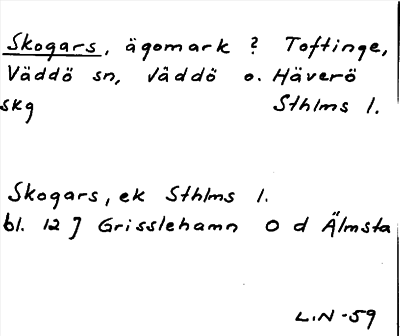 Skogars, ägomark ? Toftinge,
Väddö sn, Väddö o. Häverö
skg Sthlms l.
Skogars, ek Sthlms l.
bl. 12 J Grisslehamn O d Älmsta
L.N -59